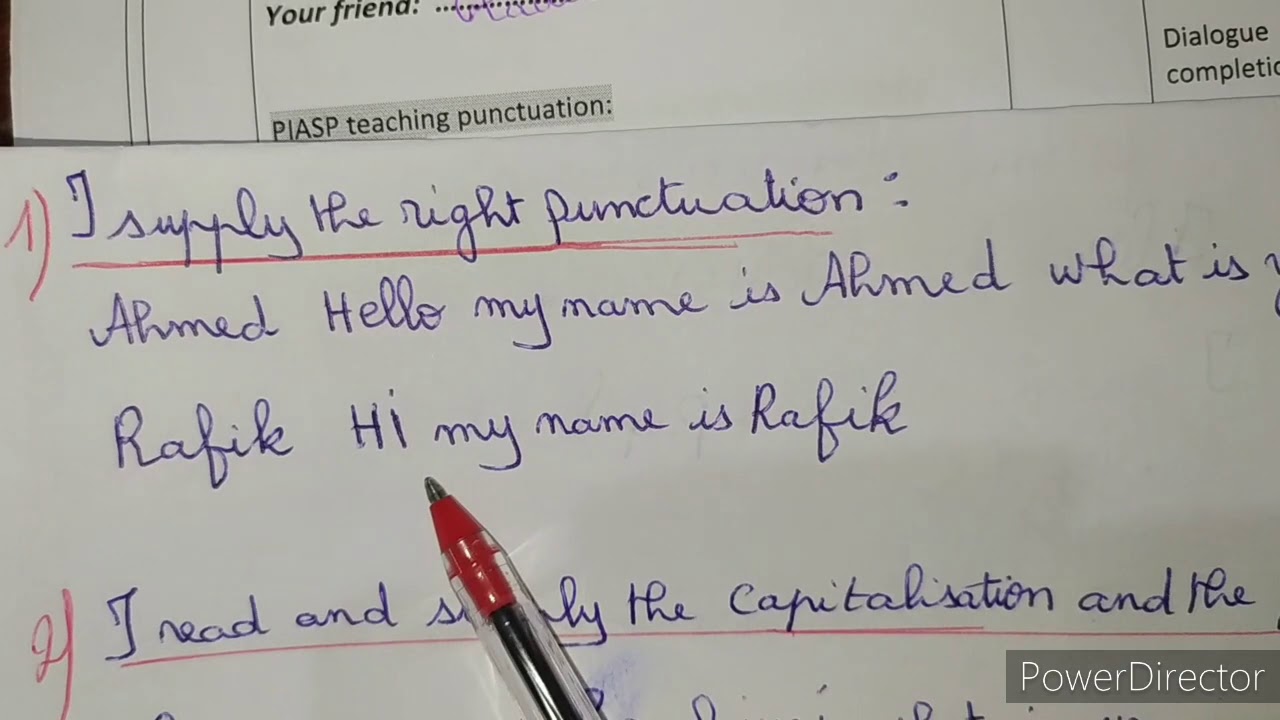 Your friend:
Dialogue
PIASP teaching punctuation:
1) I supply the right punctuation:
Ahmed Hello my name is Ahmed what is
Rafik Hi my name is Rafik
2) I read and the capitalisation and the
PowerDirector